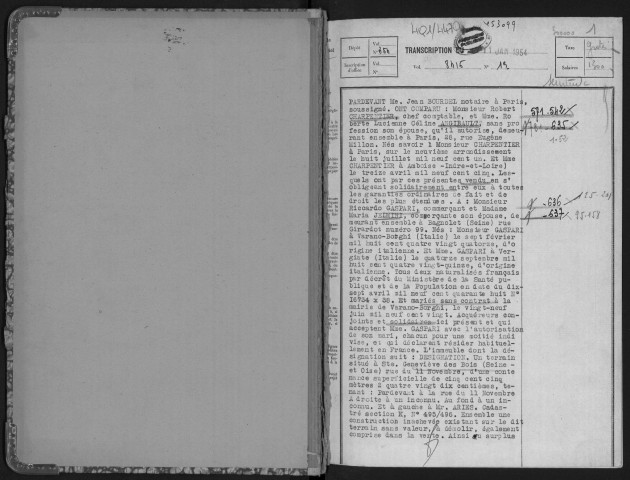 4Q1/4474
453099
1
Dépôt
Vol.
N° 854
Inscription
d'office
Vol.
N°
TRANSCRIPTION
JAN 1954
Vol. 8415 N° 12
Taxe
Salaires
PARDEVANT Me. Jean BOURDEL notaire à Paris,
soussigné. ONT COMPARU : Monsieur Robert
CHARPENTIER, chef comptable, et Mme. Ro
berte Lucienne Céline ANGIBAULT, sans pro
fession son épouse, qu'il autorise, demeu
rant ensemble à Paris, 26, rue Eugène
Millon. Nés savoir : Monsieur CHARPENTIER
à Paris, sur le neuvième arrondissement
le huit juillet mil neuf cent un. Et Mme
CHARPENTIER à Amboise -Indre-et-Loire)
le treize avril mil neuf cent cinq. Les-
quels ont par ces présentes vendu en s'
obligeant solidairement entre eux à toutes
les garanties ordinaires de fait et de
droit les plus étendues. A : Monsieur
Riccardo GASPARI, commerçant et Madame
Maria, commerçante son épouse, de
meurant ensemble à Bagnolet (Seine) rue
Girardot numéro 99. Nés : Monsieur GASPARI
à Varano-Borghi (Italie) le sept février
mil huit cent quatre vingt quatorze, d'o
rigine italienne. Et Mme. GASPARI à Ver-
giate (Italie) le quatorze septembre mil
huit cent quatre vingt-quinze, d'origine
italienne. Tous deux naturalisés français
par décret du Ministère de la Santé pu-
blique et de la Population en date du dix-
sept avril mil neuf cent quarante huit N°
16734 x 38. Et mariés sans contrat à la
mairie de Varano-Borghi, le vingt-neuf
juin mil neuf cent vingt. Acquéreurs con-
joints et solidaires ici présent et qui
acceptent Mme. GASPARI avec l'autorisation
de son mari, chacun pour une moitié indi
vise, et qui déclarent résider habituel-
lement en France. L'immeuble dont la dé-
signation suit : DESIGNATION. Un terrain
situé à Ste. Geneviève des Bois (Seine -
et Oise) rue du 11 Novembre, d'une conte
nance superficielle de cinq cent cinq
mètres 2 quatre vingt dix centièmes, te-
nant : Pardevant à la rue du 11 Novembre
A droite à un inconnu. Au fond à un in-
connu. Et à gauche à Mr. ARIES. Cadas-
tré section E, N° 495/496. Ensemble une
construction inachevée existant sur le dit
terrain sans valeur, à démolir, également
comprise dans la vente. Ainsi au surplus
571-542
635
636
637
95-158